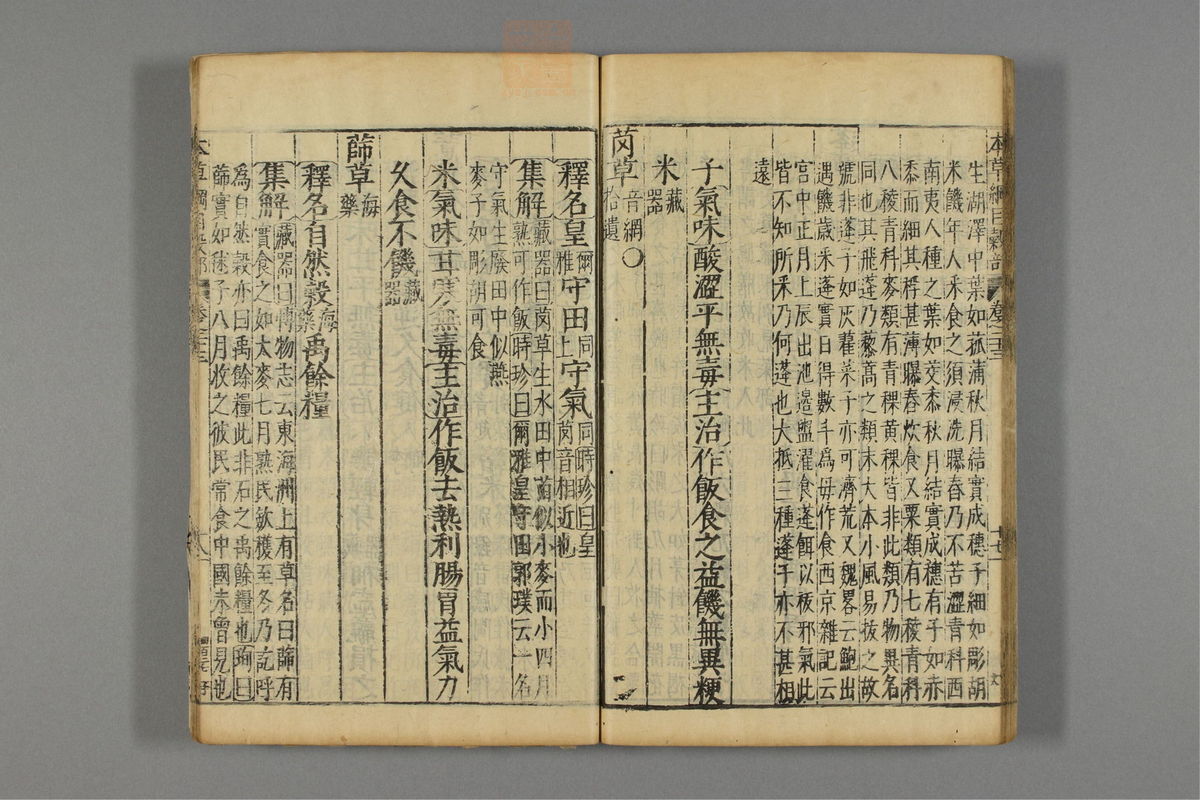 本草綱目穀部 卷二十三 十七
生湖澤中葉如菰蒲秋月結實成穗子細如彫胡
米饑年人采食之須浸洗曝舂乃不苦澀青科西
南夷人種之葉如茭黍秋月結實成穗有子如赤
黍而細其稃甚薄曝舂炊食又粟類有七稜青科
八稜青科麥類有青稞黃稞皆非此類乃物異名
同也其飛蓬乃藜蒿之類末大本小風易拔之故
號飛蓬子如灰藋菜子亦可濟荒又魏畧云鮑出
遇饑歲米蓬實日得數斗爲母作食西京雜記云
宮中正月上辰出池邊盥濯食蓬餌以祓邪氣此
皆不知所采乃何蓬也大抵三種蓬子亦不甚相
遠
子氣味酸澀平無毒主治作飯食之益饑無異粳
米藏器
茵草音網拾遺
釋名皇爾雅守田同上守氣同時珍曰皇茵音相近也
集解藏器曰茵草生水田中苗似小麥而小四月
熟可作飯時珍曰爾雅皇守田郭璞云一名
守氣生廢田中似燕
麥子如彫胡可食
米氣味甘寒無毒主治作飯去熱利腸胃益氣力
久食不饑藏器
蒒草海藥
釋名自然穀海藥禹餘糧
集解藏器曰博物志云東海洲上有草名曰蒒有
實食之如大麥七月熟民斂穫至冬乃訖呼
爲自然穀亦曰禹餘糧此非石之禹餘糧也珣曰
蒒實如毬子八月收之彼民常食中國未曾見也
本草綱目穀部 卷二十三 十八